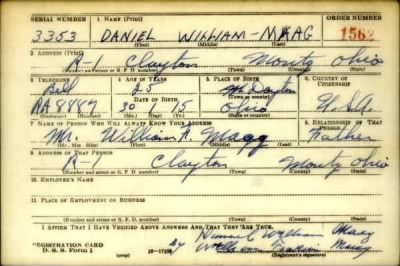 SERIAL NUMBER 1 NAME (Print) ORDER NUMBER
3353 DANIEL WILLIAM-MAAG 1562
(First) (Middle) (Last)
2 ADDRESS (Print)
R-1 Clayton Montg Ohio
(Number and street or R. F. D. number) (Town) (County) (State)
3 TELEPHONE 4 AGE IN YEARS 5 PLACE OF BIRTH 6 COUNTRY OF CITIZENSHIP
Bell 25 Dayton
DATE OF BIRTH (Town or county)
RA 8887 30 15 Ohio U.S.A.
(Exchange) (Number) (Mo.) (Day) (Yr.) (State or country)
7 NAME OF PERSON WHO WILL ALWAYS KNOW YOUR ADDRESS 8 RELATIONSHIP OF THAT PERSON
Mr. William A. Maag Father
(Mr., Mrs., Miss) (First) (Middle) (Last)
9 ADDRESS OF THAT PERSON
R-1 Clayton Montg Ohio
(Number and street or R. F. D. number) (Town) (County) (State)
10 EMPLOYER'S NAME
11 PLACE OF EMPLOYMENT OR BUSINESS
(Number and street or R. F. D. number) (Town) (County) (State)
I AFFIRM THAT I HAVE VERIFIED ABOVE ANSWERS AND THAT THEY ARE TRUE.
William Maag
REGISTRATION CARD
D. S. S. Form 1 by William Maag
(Registrant's signature)